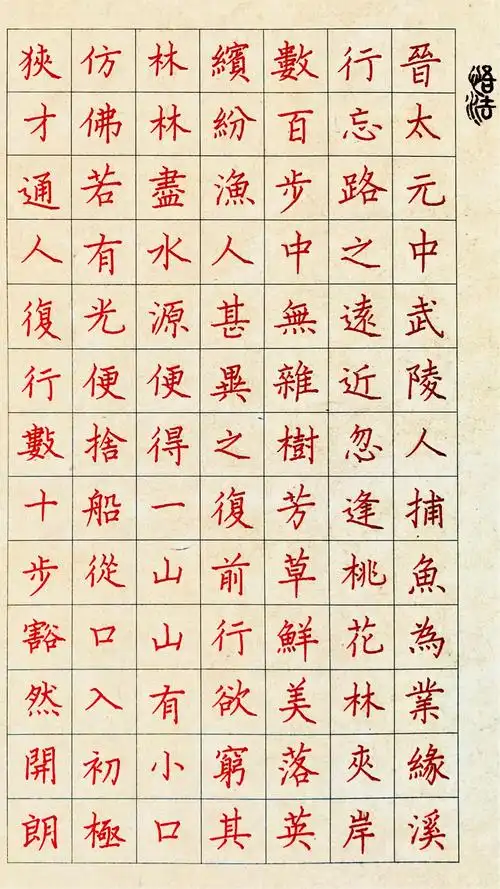 晉太元中武陵人捕魚為業緣溪
行忘路之遠近忽逢桃花林夾岸
數百步中無雜樹芳草鮮美落英
繽紛漁人甚異之復前行欲窮其
林林盡水源便得一山山有小口
仿佛若有光便捨船從口入初極
狹才通人復行數十步豁然開朗